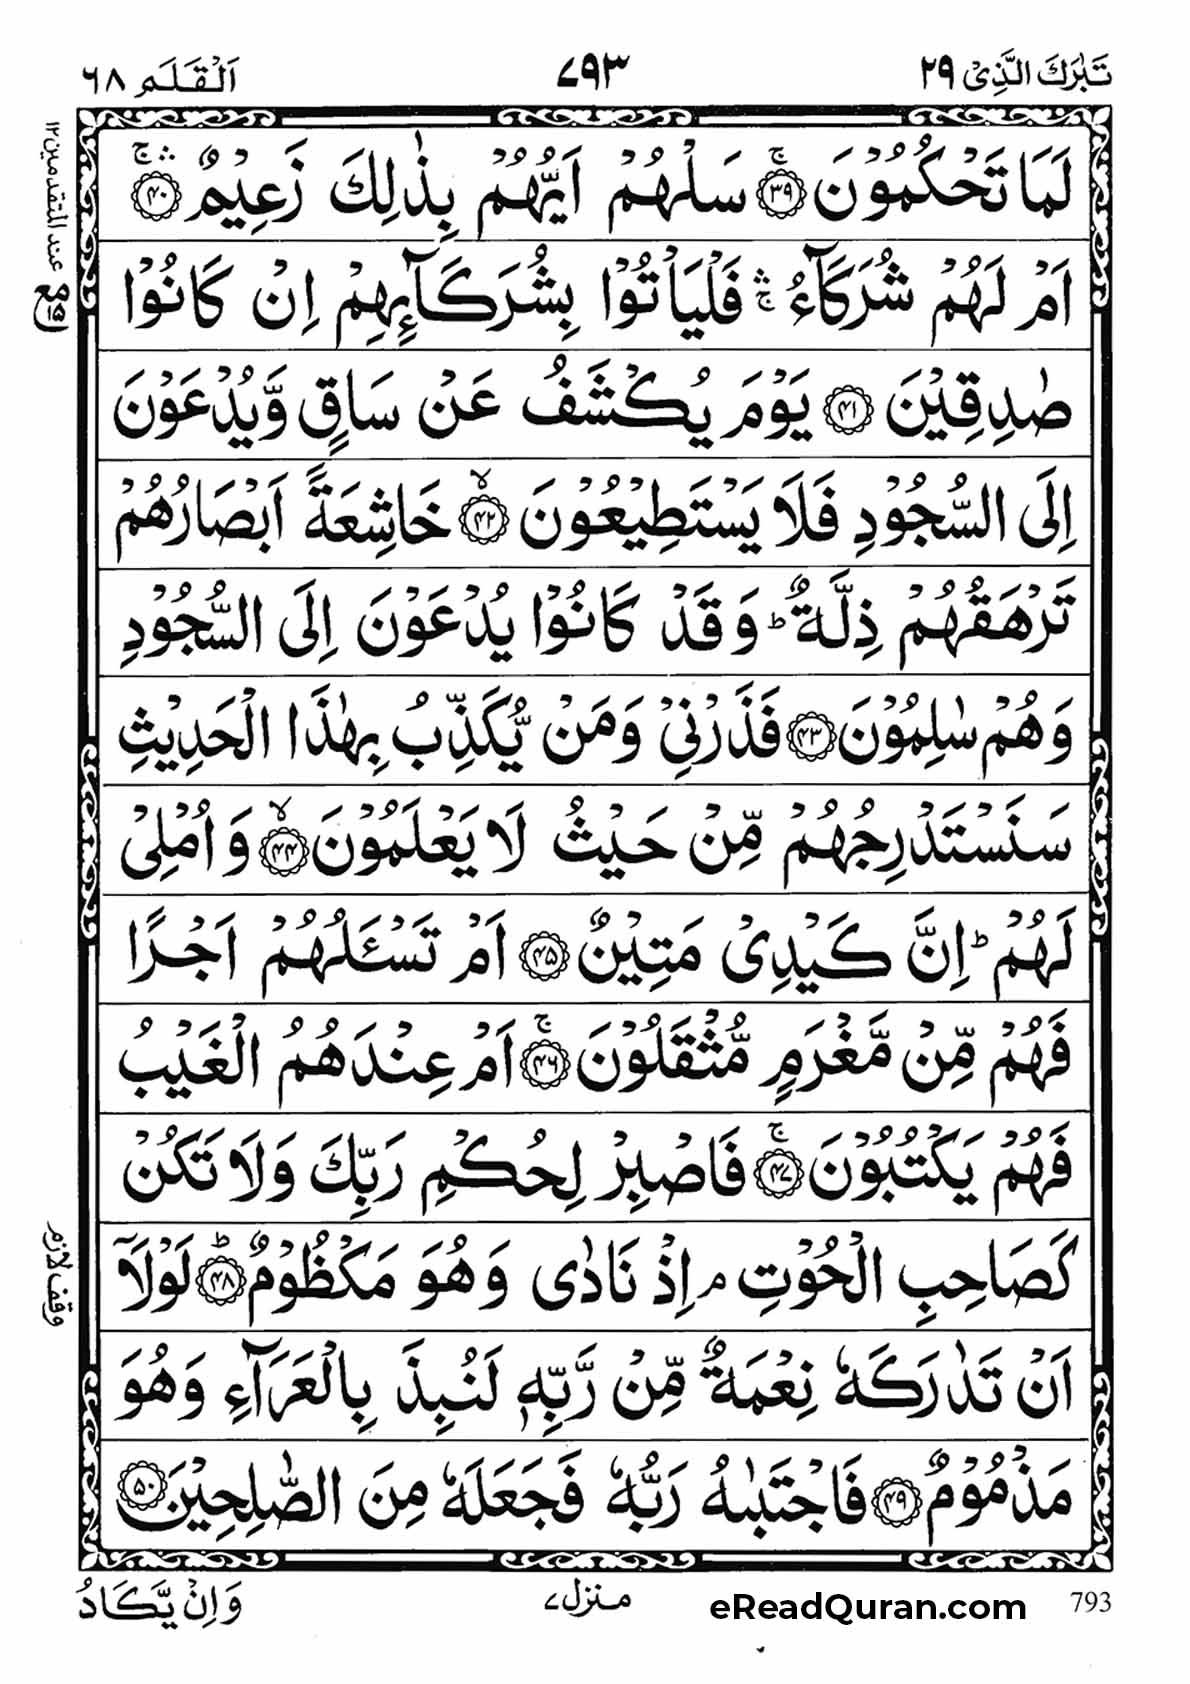 تَبٰرَكَ الَّذِىْ ٢٩
٧٩٣
اَلْقَلَم ٦٨
لَمَا تَحْكُمُوْنَ ۚ‏ ﴿۳۹﴾ سَلْهُمْ اَيُّهُمْ بِذٰلِكَ زَعِيْمٌ ۛۚ ﴿۴۰﴾
اَمْ لَهُمْ شُرَكَآءُ ۛۚ فَلْيَاْتُوْا بِشُرَكَآءِهِمْ اِنْ كَانُوْا
صٰدِقِيْنَ ﴿۴۱﴾ يَوْمَ يُكْشَفُ عَنْ سَاقٍ وَّيُدْعَوْنَ
اِلَى السُّجُوْدِ فَلَا يَسْتَطِيْعُوْنَ ۙ ﴿۴۲﴾ خَاشِعَةً اَبْصَارُهُمْ
تَرْهَقُهُمْ ذِلَّةٌ ؕ وَقَدْ كَانُوْا يُدْعَوْنَ اِلَى السُّجُوْدِ
وَهُمْ سٰلِمُوْنَ ﴿۴۳﴾ فَذَرْنِىْ وَمَنْ يُّكَذِّبُ بِهٰذَا الْحَدِيْثِ
سَنَسْتَدْرِجُهُمْ مِّنْ حَيْثُ لَا يَعْلَمُوْنَ ۙ ﴿۴۴﴾ وَاُمْلِىْ
لَهُمْ ؕ اِنَّ كَيْدِىْ مَتِيْنٌ ﴿۴۵﴾ اَمْ تَسْـَٔلُهُمْ اَجْرًا
فَهُمْ مِّنْ مَّغْرَمٍ مُّثْقَلُوْنَ ۚ ﴿۴۶﴾ اَمْ عِنْدَهُمُ الْغَيْبُ
فَهُمْ يَكْتُبُوْنَ ۚ ﴿۴۷﴾ فَاصْبِرْ لِحُكْمِ رَبِّكَ وَلَا تَكُنْ
كَصَاحِبِ الْحُوْتِ ۘ اِذْ نَادٰى وَهُوَ مَكْظُوْمٌ ؕ ﴿۴۸﴾ لَوْلَاۤ
اَنْ تَدٰرَكَهٗ نِعْمَةٌ مِّنْ رَّبِّهٖ لَنُبِذَ بِالْعَرَآءِ وَهُوَ
مَذْمُوْمٌ ﴿۴۹﴾ فَاجْتَبٰىهُ رَبُّهٗ فَجَعَلَهٗ مِنَ الصّٰلِحِيْنَ ﴿۵۰﴾
عند المتقدمين ١٢
وقف لازم
793
eReadQuran.com
منزل ٧
وَاِنْ يَّكَادُ